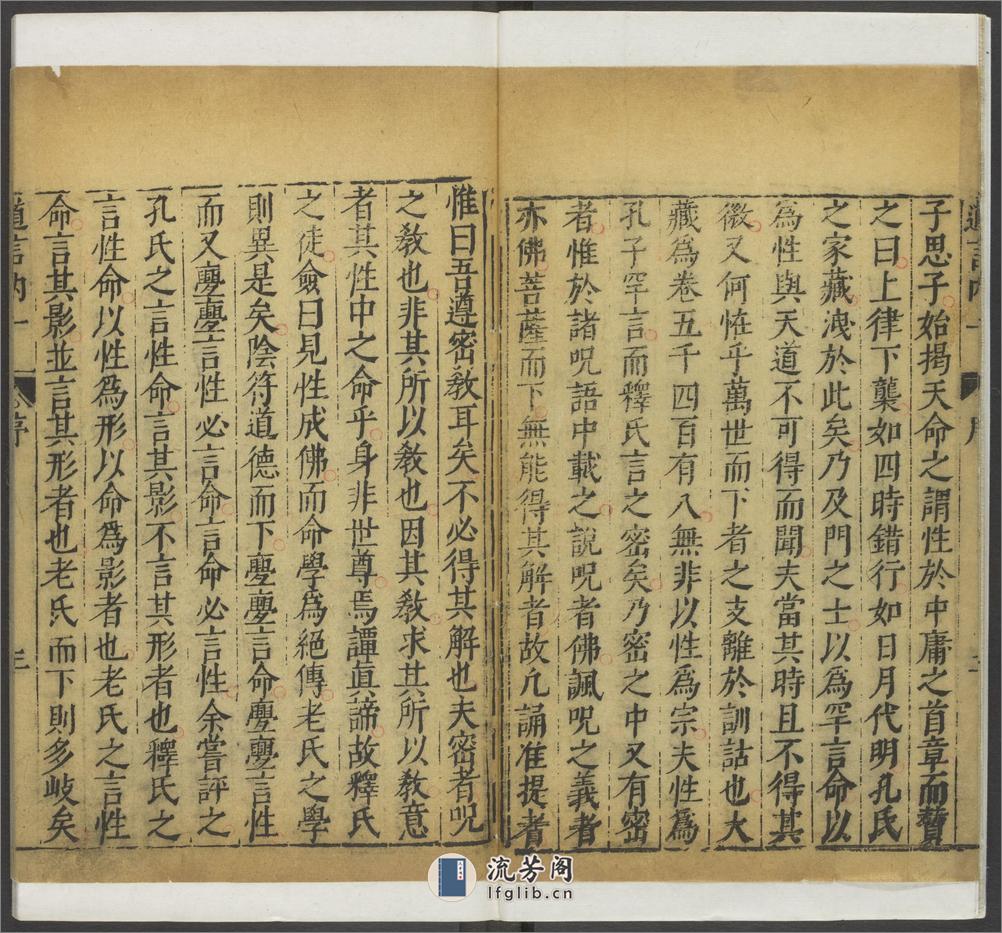 子思子始揭天命之謂性於中庸之首章而贊
之曰上律下襲如四時錯行如日月代明孔氏
之家藏洩於此矣乃及門之士以為罕言命以
為性與天道不可得而聞夫當其時且不得其
微又何恠乎萬世而下者之支離於訓詁也大
藏為卷五千四百有八無非以性為宗夫性為
孔子罕言而釋氏言之密矣乃密之中又有密
者惟於諸呪語中載之說呪者佛諷呪之義者
亦佛菩薩而下無能得其解者故凢誦准提者
惟曰吾遵密教耳矣不必得其解也夫密者呪
之教也非其所以教也因其教求其所以教意
者其性中之命乎身非世尊焉譚真諦故釋氏
之徒僉曰見性成佛而命學為絕傳老氏之學
則異是矣陰符道德而下亹亹言命亹亹言性
而又亹亹言性必言命言命必言性余嘗評之
孔氏之言性命言其影不言其形者也釋氏之
言性命以性為形以命為影者也老氏之言性
命言其影並言其形者也老氏而下則多岐矣
道言內
序
三
流芳阁
lfglib.cn